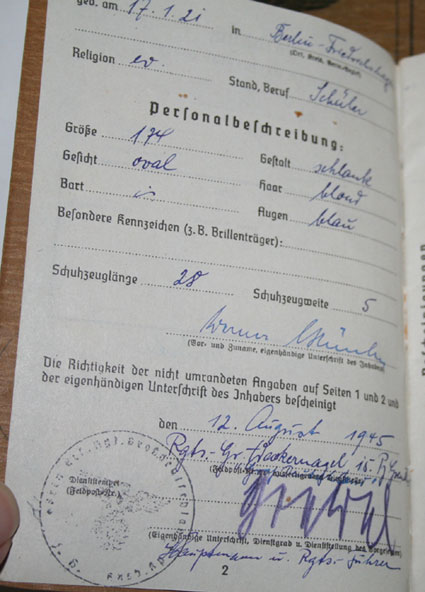 geb. am 17.1.21 in Berlin-
(Ort, Kreis, Verw.-Bezirk)
Religion ev Stand, Beruf Schüler
Personalbeschreibung:
Größe 174 Gestalt schlank
Gesicht oval Haar blond
Bart Augen blau
Besondere Kennzeichen (z. B. Brillenträger):
Schuhzeuglänge 28 Schuhzeugweite 5
Werner
(Vor- und Zuname, eigenhändige Unterschrift des Inhabers)
Die Richtigkeit der nicht umrandeten Angaben auf Seiten 1 und 2 und
der eigenhändigen Unterschrift des Inhabers bescheinigt
den 12. August 1945
Rgts.-Gr.
Dienststempel
(Feldpost-Nr.)
(Eigenhändige Unterschrift, Dienstgrad u. Dienststellung des Vorgesetzten)
Hauptmann u. Rgts.-Führer
2